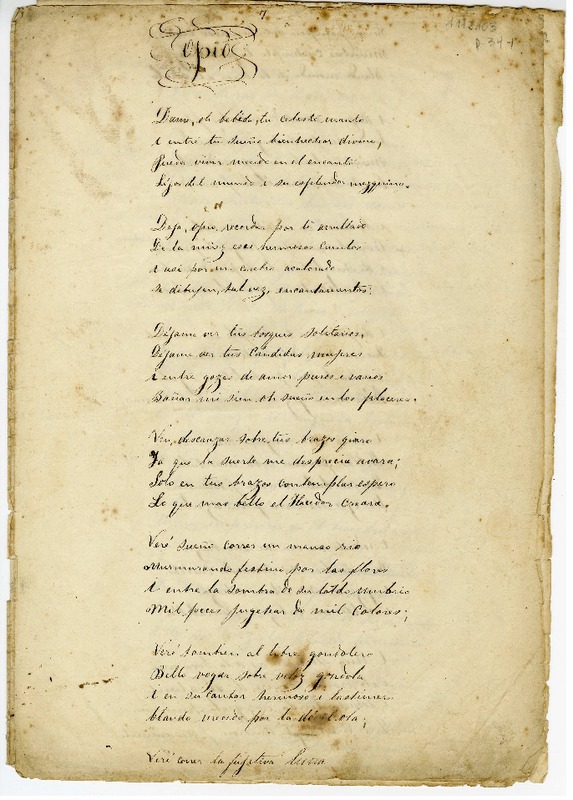 7
1112103
p. 34-1
Opio
Dame, oh bebida, tu celeste manto
I entre tu sueño bienhechor divino,
Pueda vivir mecido en el encanto
Léjos del mundo i su esplendor mezquino.
Deja, opio, recordar por ti arrullado
De la niñez esos hermosos cuentos
I asi por mi cerebro acalorado
se dibujen, tal vez, encantamentos.
Déjame ver tus bosques solitarios,
Déjame ver tus cándidas mujeres
I entre gozes de amor puros i varios
Bañar mi sien oh sueño en los placeres.
Ven, descanzar sobre tus brazos quiero
Ya que la suerte me desprecia avara;
Solo en tus brazos contemplar espero
Lo que mas bello el Hacedor creara.
Veré sueño correr un manso rio
Murmurando festivo por las flores
I entre la sombra de su toldo umbrio
Mil peces juguetear de mil colores;
Veré tambien al libre gondolero
Bello vogar sobre veloz gondola
I en su cantar hermoso i lastimero
blando mecido por la dócil ola;
Veré correr la fujitiva luna